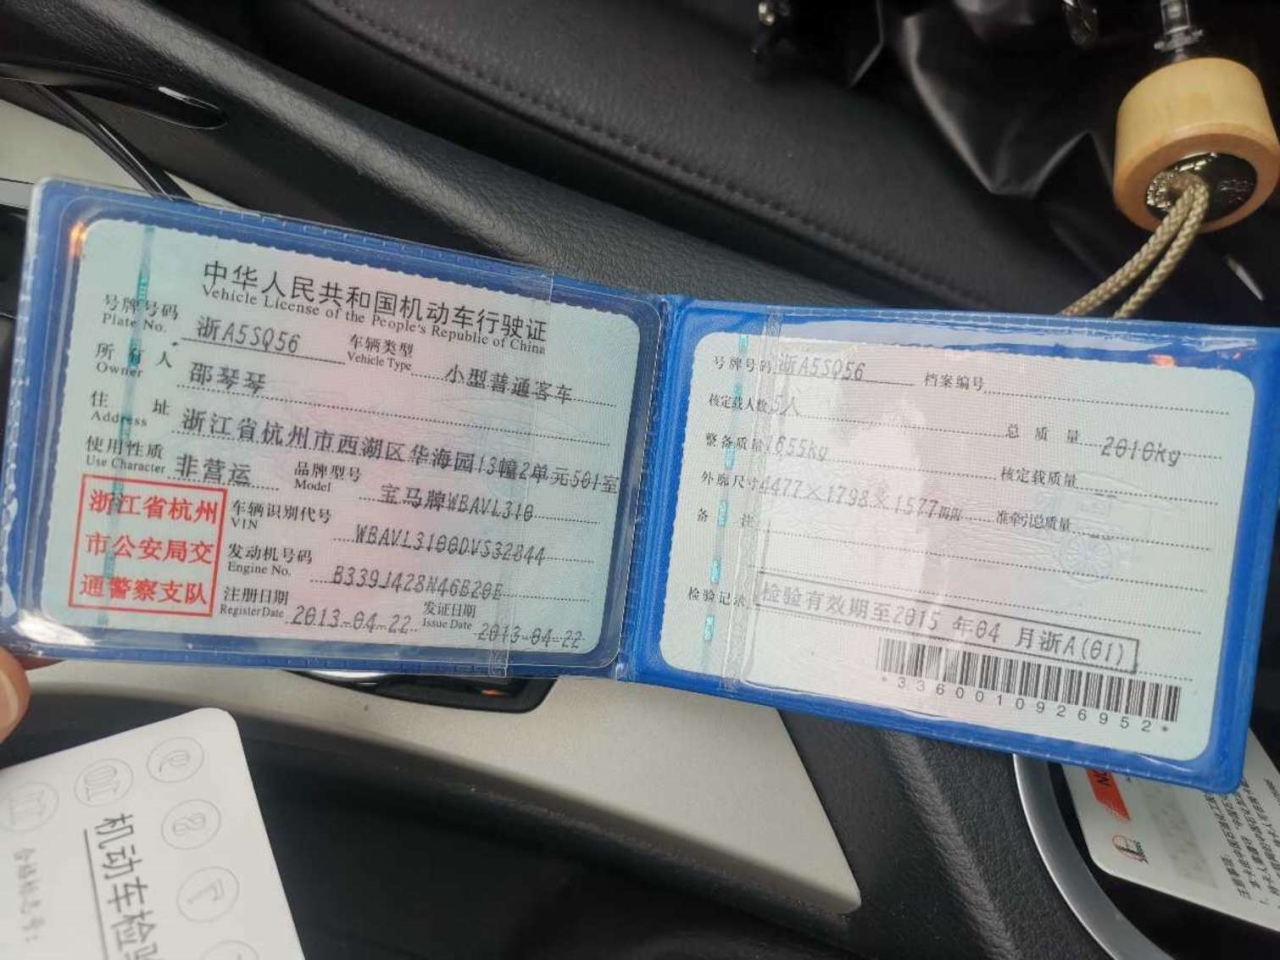 中华人民共和国机动车行驶证
Vehicle License of the People's Republic of China
号牌号码 浙A5SQ56 车辆类型 小型普通客车
Plate No. Vehicle Type
所有人 邵琴琴
Owner
住址 浙江省杭州市西湖区华海园13幢2单元501室
Address
使用性质 非营运 品牌型号 宝马牌WBAVL310
Use Character Model
浙江省杭州
市公安局交
通警察支队
车辆识别代号 WBAVL3100DVS32844
VIN
发动机号码 B339J428N46B20E
Engine No.
注册日期 2013-04-22 发证日期 2013-04-22
Register Date Issue Date
号牌号码 浙A5SQ56 档案编号
核定载人数 5人 总质量 2010kg
整备质量 1655kg 核定载质量
外廓尺寸 4477×1798×1577mm 准牵引总质量
备注
检验记录 检验有效期至2015年04月浙A(01)
*3360010926952*
机动车检验
合格标志号: